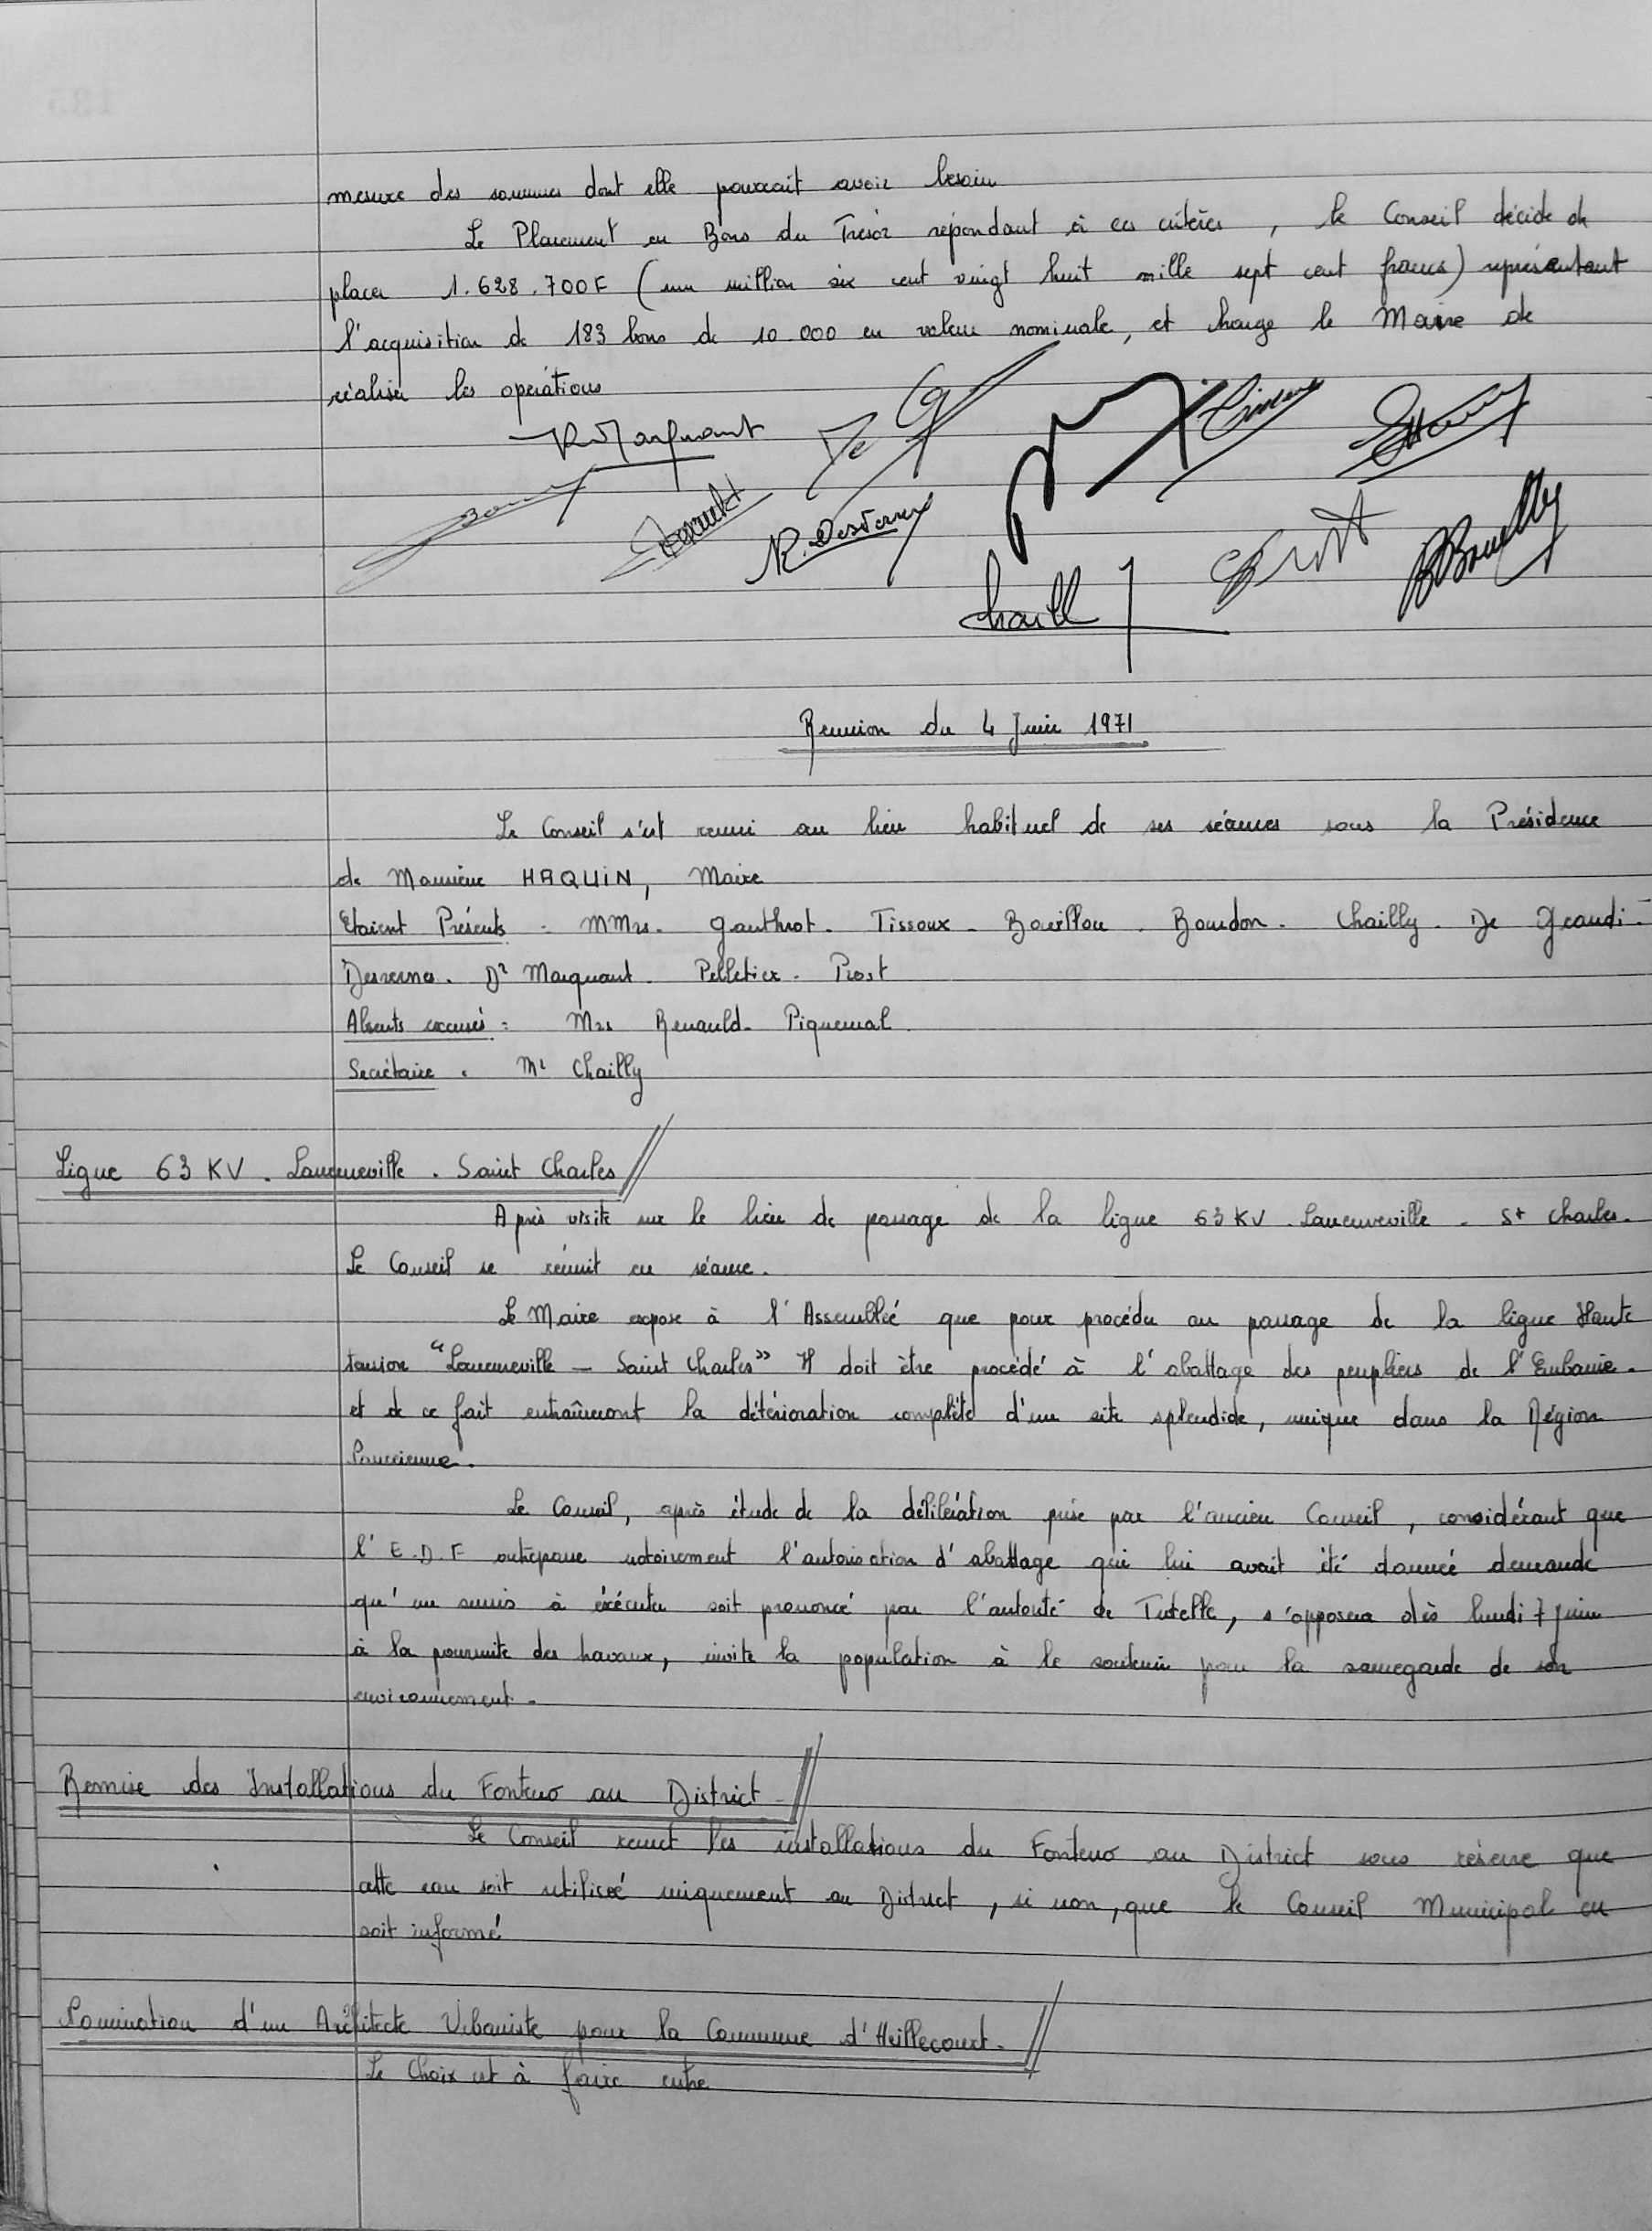 mesure des sommes dont elle pourrait avoir besoin
Le Placement en Bons du Trésor répondant à ces critères, le Conseil décide de
placer 1.628.700F (un million six cent vingt huit mille sept cent francs) représentant
l'acquisition de 183 bons de 10.000 en valeur nominale, et charge le Maire de
réaliser les opérations
R Marquant
R. Desvernes
Chailly
Prost
Reunion du 4 Juin 1971
Le Conseil s'est reuni au lieu habituel de ses séances sous la Présidence
de Monsieur HAQUIN, Maire
Etaient Présents : MMrs. Gauthrot. Tissoux. Bouillon. Bourdon. Chailly. De Grandi-
Desvernes. Dr Marquant. Pelletier. Prost
Absents excusés : Mrs Renauld. Piquemal.
Secrétaire : Mr Chailly
Ligne 63 KV. Laneuveville. Saint Charles
Après visite sur le lieu de passage de la ligne 63 KV. Laneuveville - St Charles.
Le Conseil se réunit en séance.
Le Maire expose à l'Assemblée que pour procéder au passage de la ligne Haute
tension "Laneuveville - Saint Charles" Il doit être procédé à l'abattage des peupliers de l'Embanie.
et de ce fait entraîneront la détérioration complète d'un site splendide, unique dans la Région
Nancéienne.
Le Conseil, après étude de la délibération prise par l'ancien Conseil, considérant que
l'E.D.F outrepasse notoirement l'autorisation d'abattage qui lui avait été donnée demande
qu'un sursis à éxécuter soit prononcé par l'autorité de Tutelle, s'opposera dès lundi 7 juin
à la poursuite des travaux, invite la population à le soutenir pour la sauvegarde de son
environnement.
Remise des Installations du Fonteno au District
Le Conseil remet les installations du Fonteno au District sous réserve que
cette eau soit utilisée uniquement au District, si non, que le Conseil Municipal en
soit informé
Nomination d'un Architecte Urbaniste pour la Commune d'Heillecourt.
Le Choix est à faire entre